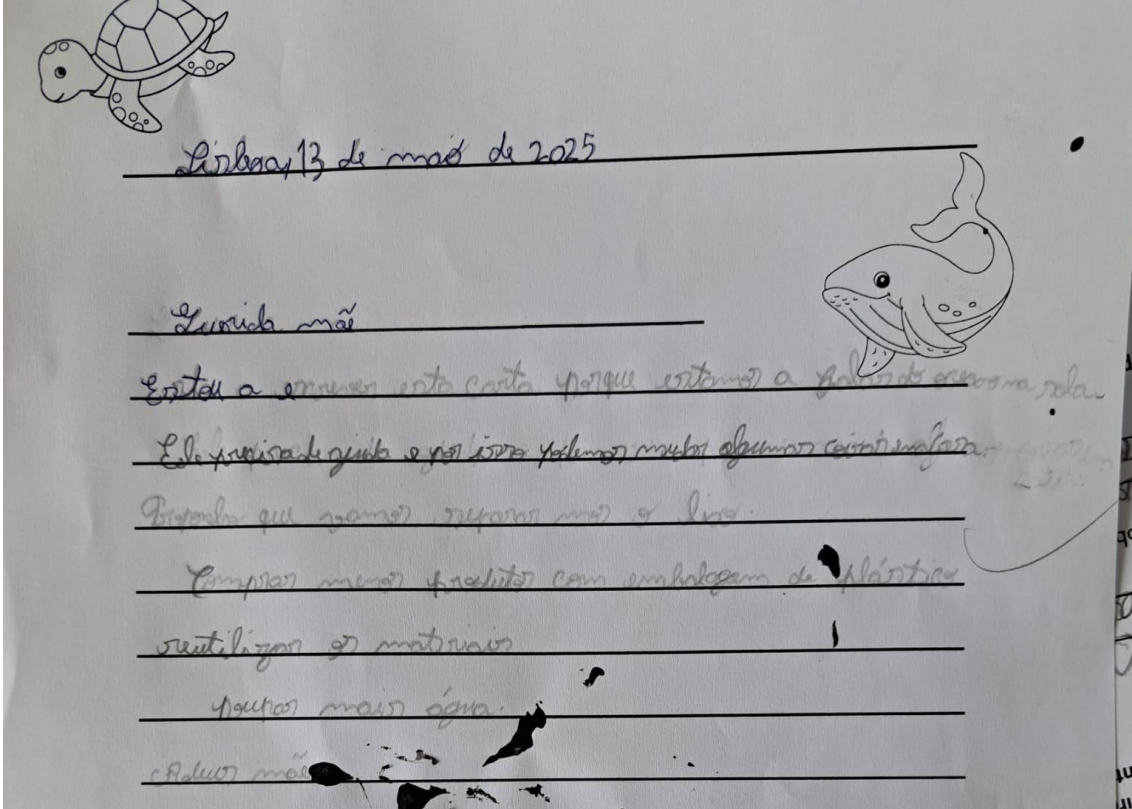 Lisboa, 13 de maio de 2025
Querida mãe
Estou a escrever esta carta porque estamos a falar do oceano na sala.
Ele precisa de ajuda e por isso podemos mudar algumas coisas em casa.
que vamos separar mos o lixo.
Comprar menos produtos com embalagem de plástico
reutilizar os materiais
poupar mais água.
Adeus mãe